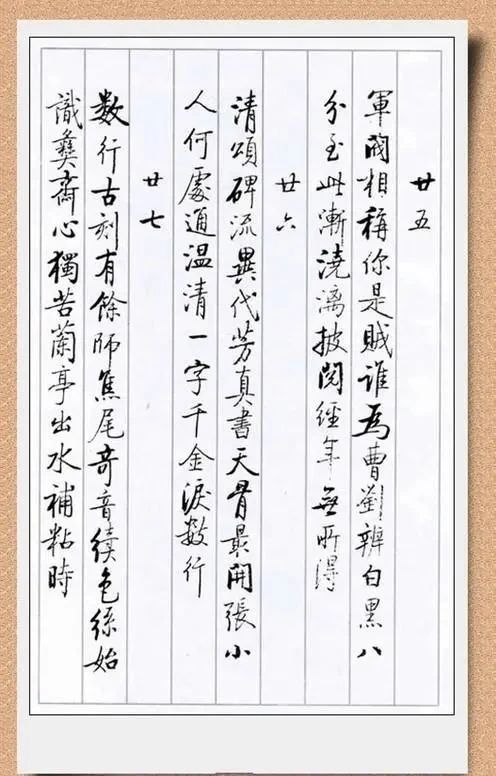 廿五
軍閥相稱你是賊誰為曹劉辨白黑八
分至此漸澆漓披閱經年無所得
廿六
清頌碑流異代芳真書天骨最開張小
人何處通温清一字千金淚数行
廿七
数行古刻有餘師焦尾奇音續色絲始
識彝齋心獨苦蘭亭出水補粘時